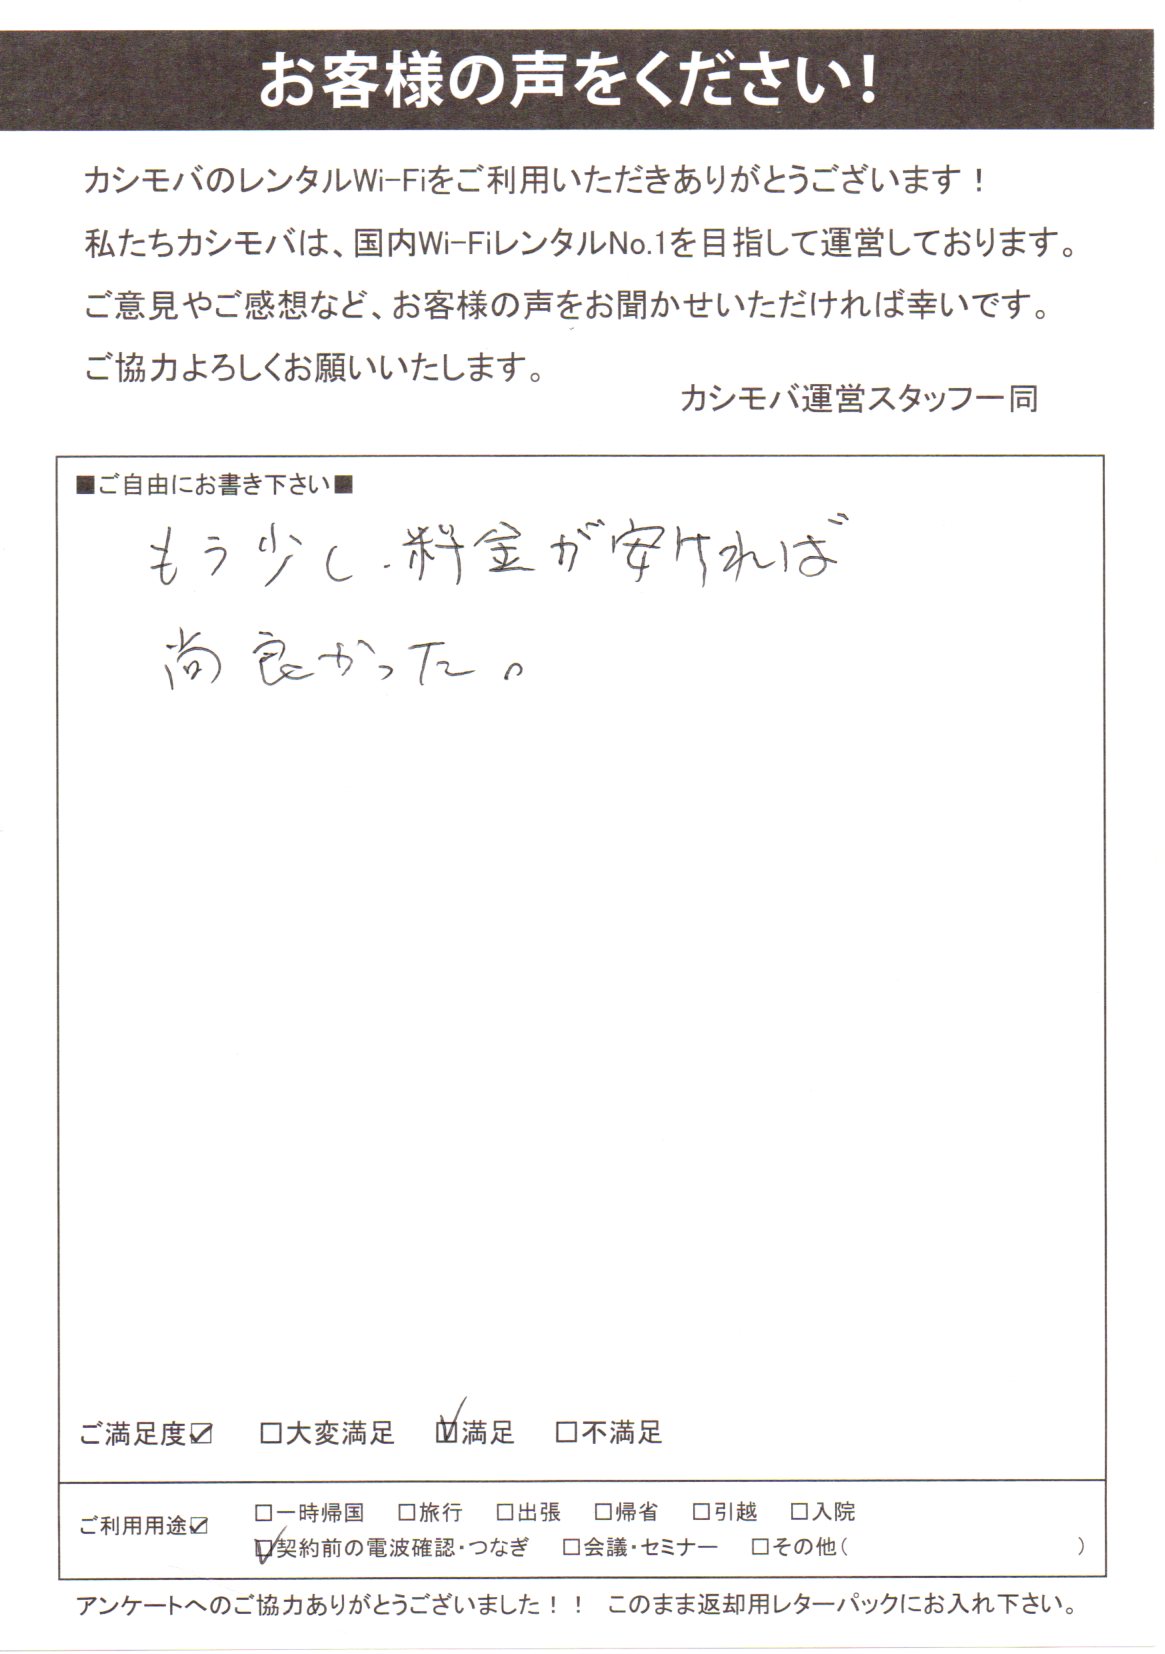 お客様の声をください!
カシモバのレンタルWi-Fiをご利用いただきありがとうございます!
私たちカシモバは、国内Wi-FiレンタルNo.1を目指して運営しております。
ご意見やご感想など、お客様の声をお聞かせいただければ幸いです。
ご協力よろしくお願いいたします。
カシモバ運営スタッフ一同
■ご自由にお書き下さい■
もう少し、料金が安ければ
尚良かった。
ご満足度☑ □大変満足 ☑満足 □不満足
ご利用用途☑ □一時帰国 □旅行 □出張 □帰省 □引越 □入院
☑契約前の電波確認・つなぎ □会議・セミナー □その他( )
アンケートへのご協力ありがとうございました!! このまま返却用レターパックにお入れ下さい。